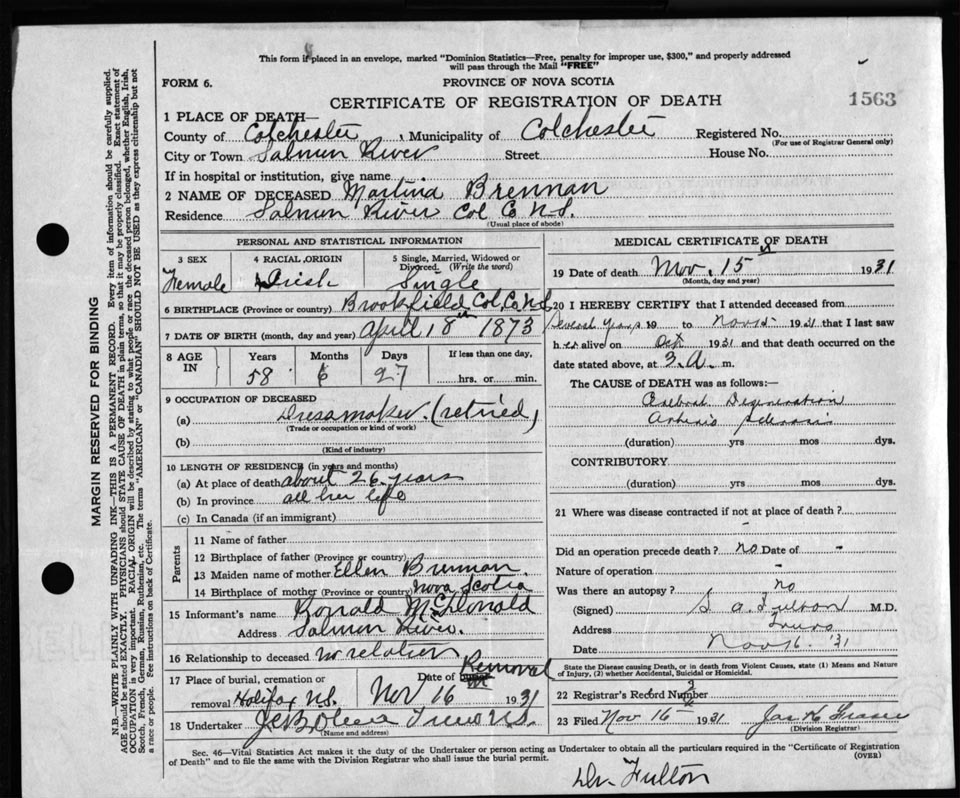 This form if placed in an envelope, marked "Dominion Statistics—Free, penalty for improper use, $300," and properly addressed
will pass through the Mail "FREE"
FORM 6.
PROVINCE OF NOVA SCOTIA
CERTIFICATE OF REGISTRATION OF DEATH
1563
1 PLACE OF DEATH—
County of Colchester, Municipality of Colchester Registered No.
(For use of Registrar General only)
City or Town Salmon River Street House No.
If in hospital or institution, give name
2 NAME OF DECEASED Martina Brennan
Residence Salmon River Col Co N.S.
(Usual place of abode)
MARGIN RESERVED FOR BINDING
N.B.—WRITE PLAINLY WITH UNFADING INK—THIS IS A PERMANENT RECORD. Every item of information should be carefully supplied.
AGE should be stated EXACTLY. PHYSICIANS should STATE CAUSE OF DEATH in plain terms, so that it may be properly classified. Exact statement of
OCCUPATION is very important. RACIAL ORIGIN will be described by stating to what people or race the deceased person belonged, whether English, Irish,
Scotch, French, German, Russian, Ruthenian, etc. The terms "AMERICAN" or "CANADIAN" SHOULD NOT BE USED as they express citizenship but not
a race or people. See instructions on back of Certificate.
PERSONAL AND STATISTICAL INFORMATION
3 SEX
Female
4 RACIAL ORIGIN
Irish
5 Single, Married, Widowed or
Divorced. (Write the word)
Single
6 BIRTHPLACE (Province or country) Brookfield Col. Co. N.S.
7 DATE OF BIRTH (month, day and year) April 18th 1873
8 AGE IN
Years Months Days If less than one day,
58 6 27 hrs. or min.
9 OCCUPATION OF DECEASED
(a) Dressmaker. (retried)
(Trade or occupation or kind of work)
(b)
(Kind of industry)
10 LENGTH OF RESIDENCE (in years and months)
(a) At place of death about 26 years
(b) In province all her life
(c) In Canada (if an immigrant)
Parents
11 Name of father
12 Birthplace of father (Province or country)
13 Maiden name of mother Ellen Brennan
14 Birthplace of mother (Province or country) Nova Scotia
15 Informant's name Ronald McDonald
Address Salmon River.
16 Relationship to deceased no relation
17 Place of burial, cremation or Date of burial Removal
removal Halifax N.S. Nov 16 1931
18 Undertaker Truro N.S.
(Name and address)
MEDICAL CERTIFICATE OF DEATH
19 Date of death Nov. 15th 1931
(Month, day and year)
20 I HEREBY CERTIFY that I attended deceased from
Several years 19 to Nov 15 1931 that I last saw
her alive on Oct 1931 and that death occurred on the
date stated above, at 3. A. m.
The CAUSE OF DEATH was as follows:—
Cerebral Degeneration
Arterio
(duration) yrs mos dys.
CONTRIBUTORY
(duration) yrs mos dys.
21 Where was disease contracted if not at place of death?
Did an operation precede death? no Date of -
Nature of operation -
Was there an autopsy? no
(Signed) S. A. Fulton M.D.
Address Truro
Date Nov 16. '31
State the Disease causing Death, or in death from Violent Causes, state (1) Means and Nature
of Injury, (2) whether Accidental, Suicidal or Homicidal.
22 Registrar's Record Number
23 Filed Nov 16 1931 Jas K Fraser
(Division Registrar)
Sec. 46—Vital Statistics Act makes it the duty of the Undertaker or person acting as Undertaker to obtain all the particulars required in the "Certificate of Registration
of Death" and to file the same with the Division Registrar who shall issue the burial permit.
(OVER)
Dr. Fulton